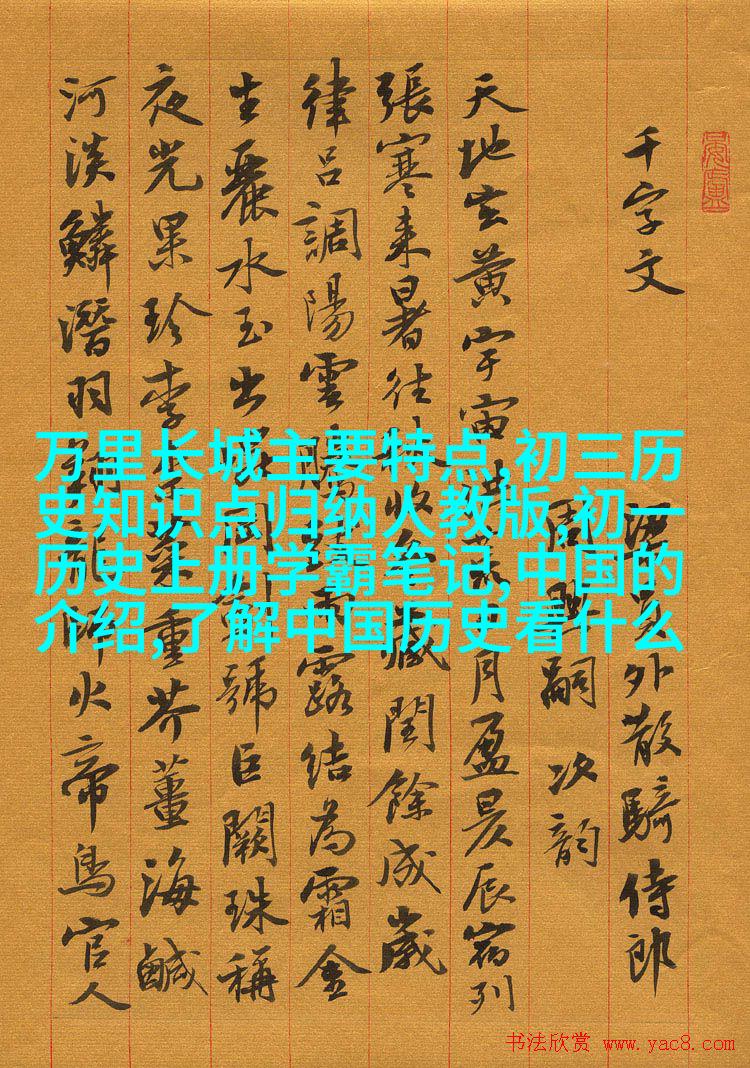 千字文
梁員外散騎侍郎
周興嗣次韵
天地玄黄宇宙洪荒日月盈昃辰宿列
張寒来暑往秋收冬藏閏餘成歲
律吕調陽雲騰致雨露結為霜金
生麗水玉出崑岡劍號巨闕珠稱
夜光果珍李柰菜重芥薑海鹹
河淡鱗潛羽翔龍師火帝鳥官人
万里长城主要特点,初三历
史知识点归纳人教版,初一
历史上册学霸笔记,中国的
介绍,了解中国历史看什么
书法欣赏 www.yac8.com